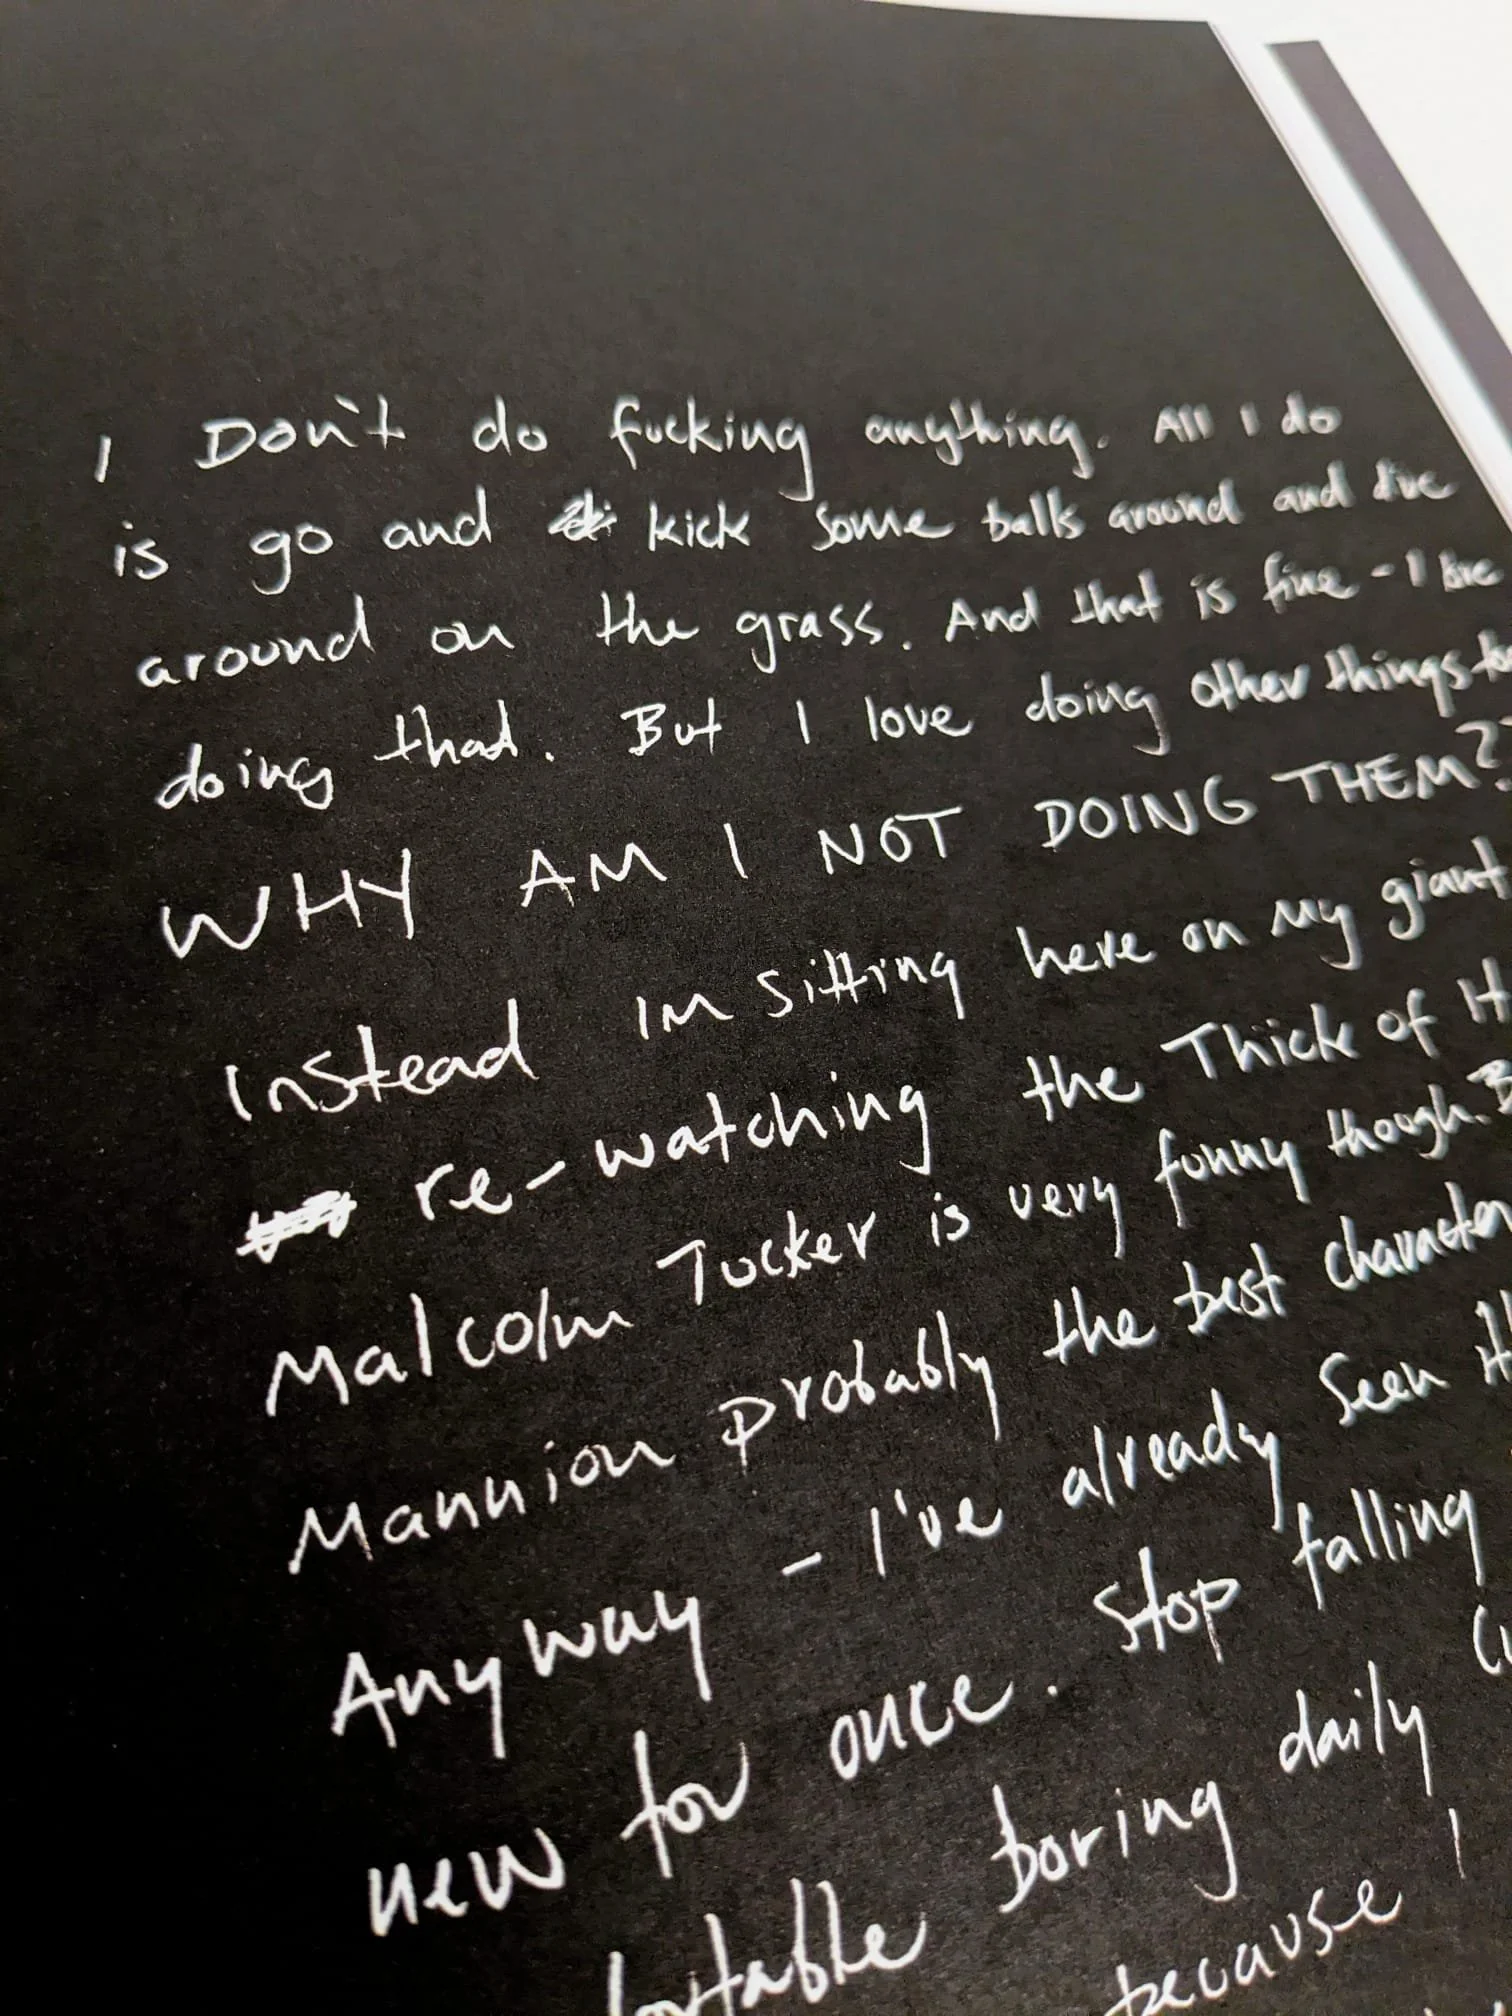 I Don't do fucking anything. All I do
is go and kick some balls around and dive
around on the grass. And that is fine - I love
doing that. But I love doing other things too
WHY AM I NOT DOING THEM?
Instead Im sitting here on my giant
re-watching the Thick of It
Malcolm Tucker is very funny though.
Mannion probably the best character
Anyway - I've already seen it
new for once. Stop falling
boring daily
because I